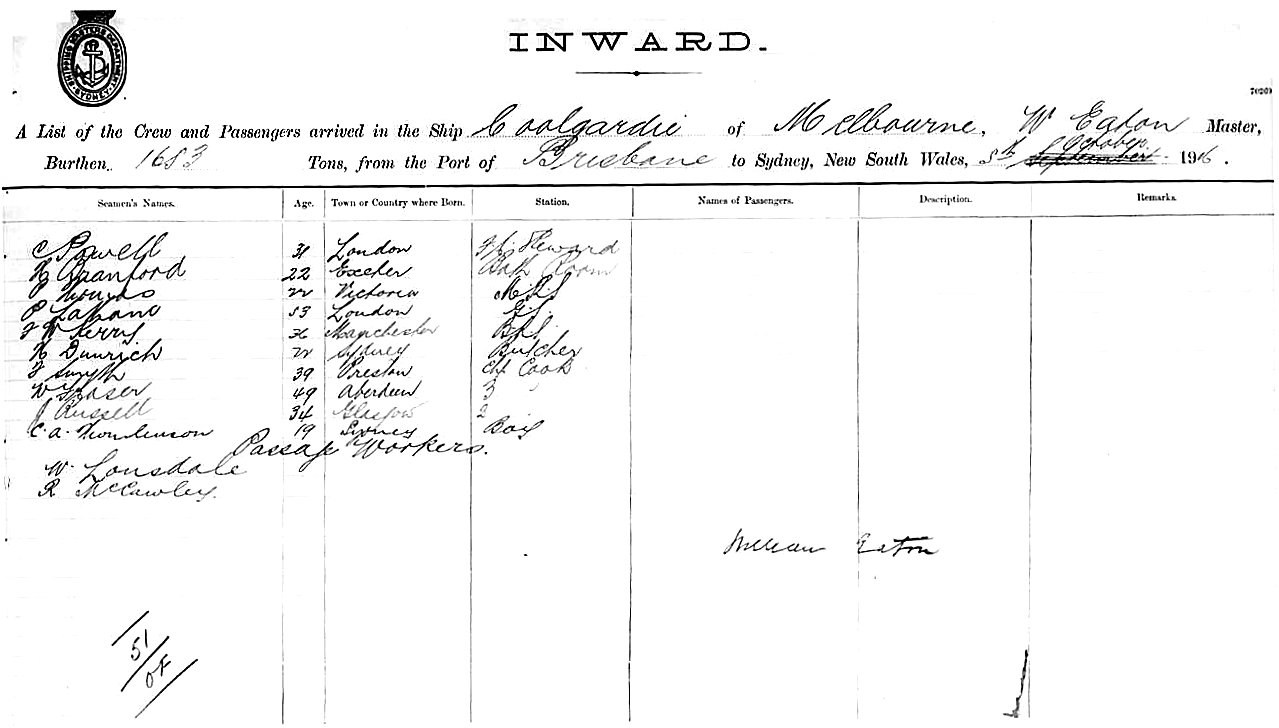 SHIPPING MASTERS DEPARTMENT SYDNEY
INWARD.
7020)
A List of the Crew and Passengers arrived in the Ship Coolgardie of Melbourne, W Eaton Master,
Burthen 1683 Tons, from the Port of Brisbane to Sydney, New South Wales, 5th September October 1916.
Seamen's Names. Age. Town or Country where Born. Station. Names of Passengers. Description. Remarks.
C Powell 31 London Steward
H Branford 22 Exeter Bath Room
22 Victoria
P 53 London
F W Kerry 36 Manchester
H Dunrich 22 Sydney Butcher
F Smyth 39 Preston Chf Cook
W Fraser 49 Aberdeen 3
J Russell 34 Glasgow 2
C. A. Tomlinson 19 Sydney Boy
Passage Workers.
W. Lonsdale
R McCawley.
William Eaton
51